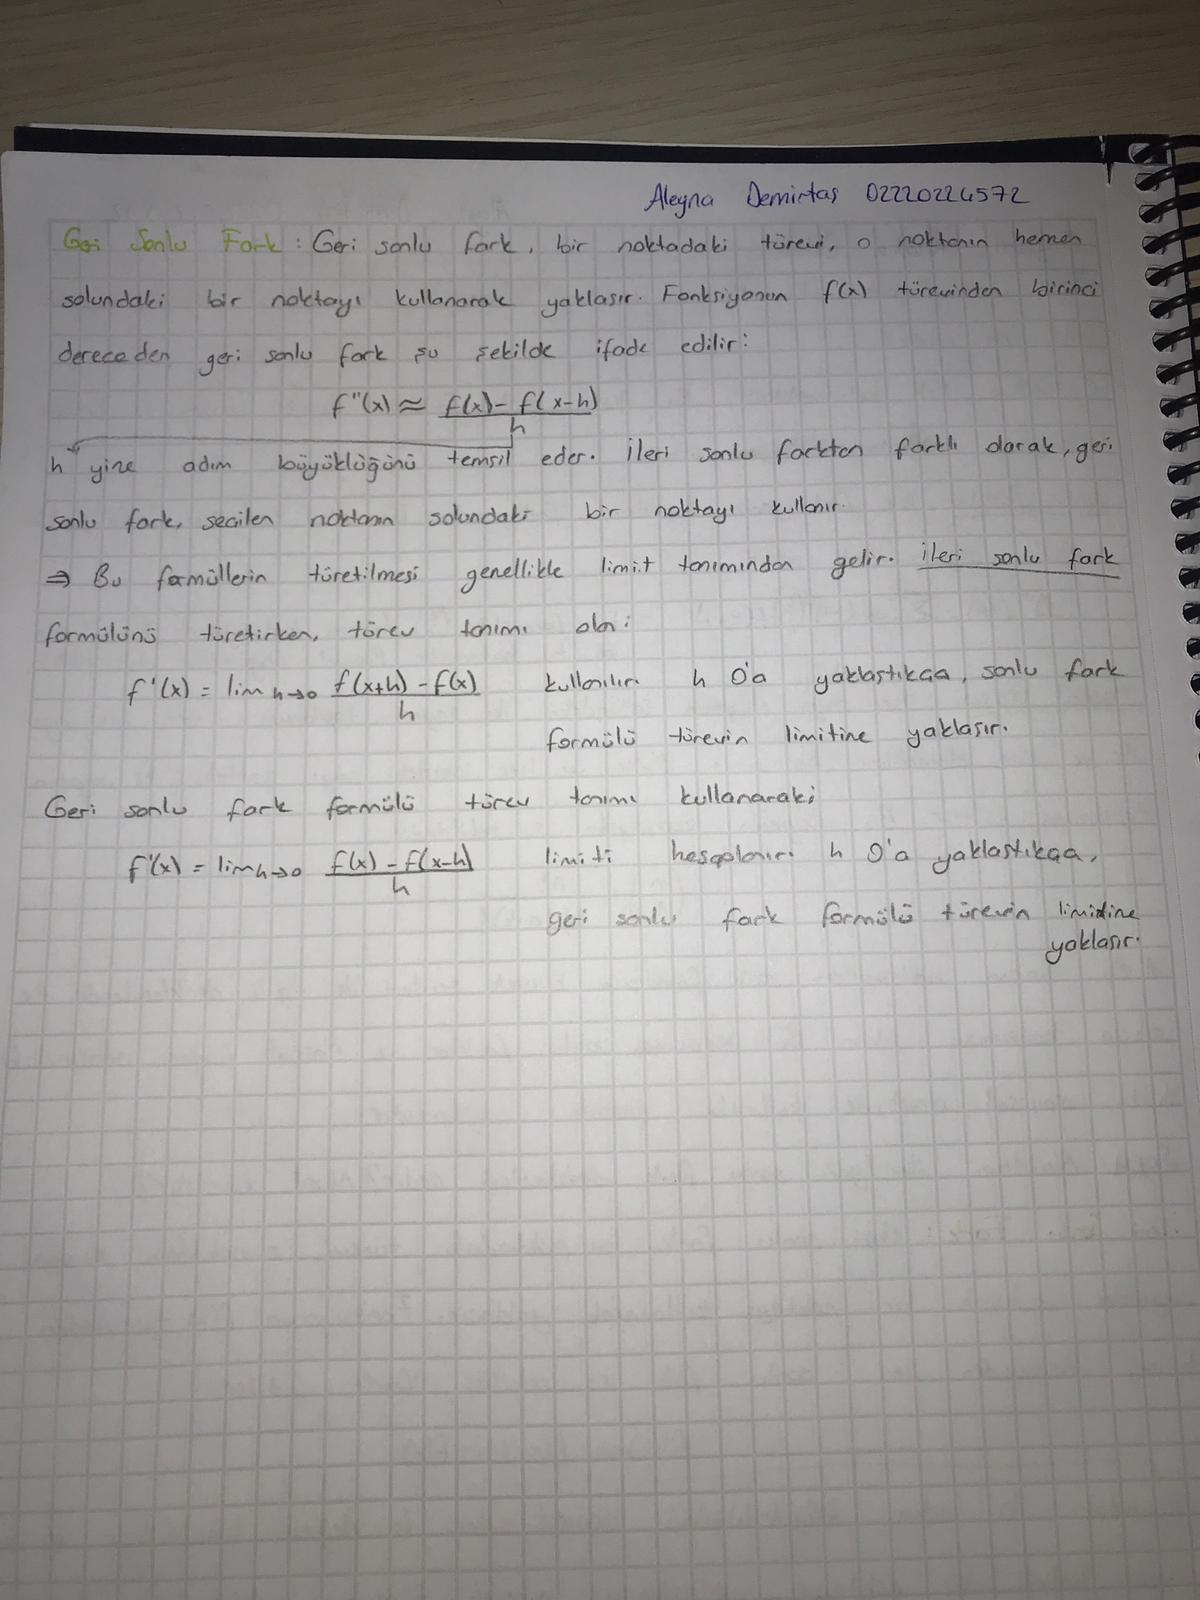 Aleyna Demirtas 02220224572
Geri Sonlu Fark : Geri sonlu fark, bir noktadaki türevi, o noktanın hemen
solundaki bir noktayı kullanarak yaklasır. Fonksiyonun f(x) türevinden birinci
dereceden geri sonlu fark şu şekilde ifade edilir:
f''(x) ≈ f(x) - f(x-h) / h
h yine adım büyüklüğünü temsil eder. ileri sonlu farktan farklı olarak, geri
sonlu fark, secilen noktanın solundaki bir noktayı kullanır.
⇒ Bu formüllerin türetilmesi genellikle limit tanımından gelir. ileri sonlu fark
formülünü türetirken, türev tanımı olan:
f'(x) = lim h→0 f(x+h) - f(x) / h kullanılır. h 0'a yaklastıkca, sonlu fark
formülü türevin limitine yaklasır.
Geri sonlu fark formülü türev tanımı kullanarak;
f'(x) = lim h→0 f(x) - f(x-h) / h limiti hesaplanır. h 0'a yaklastıkca,
geri sonlu fark formülü türevin limitine
yaklasır.